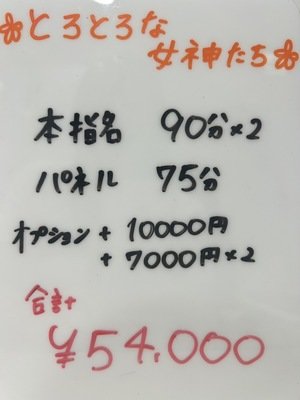 とろとろな
女神たち
本指名 90分×2
パネル 75分
オプション + 10000円
+ 7000円×2
合計
¥54,000